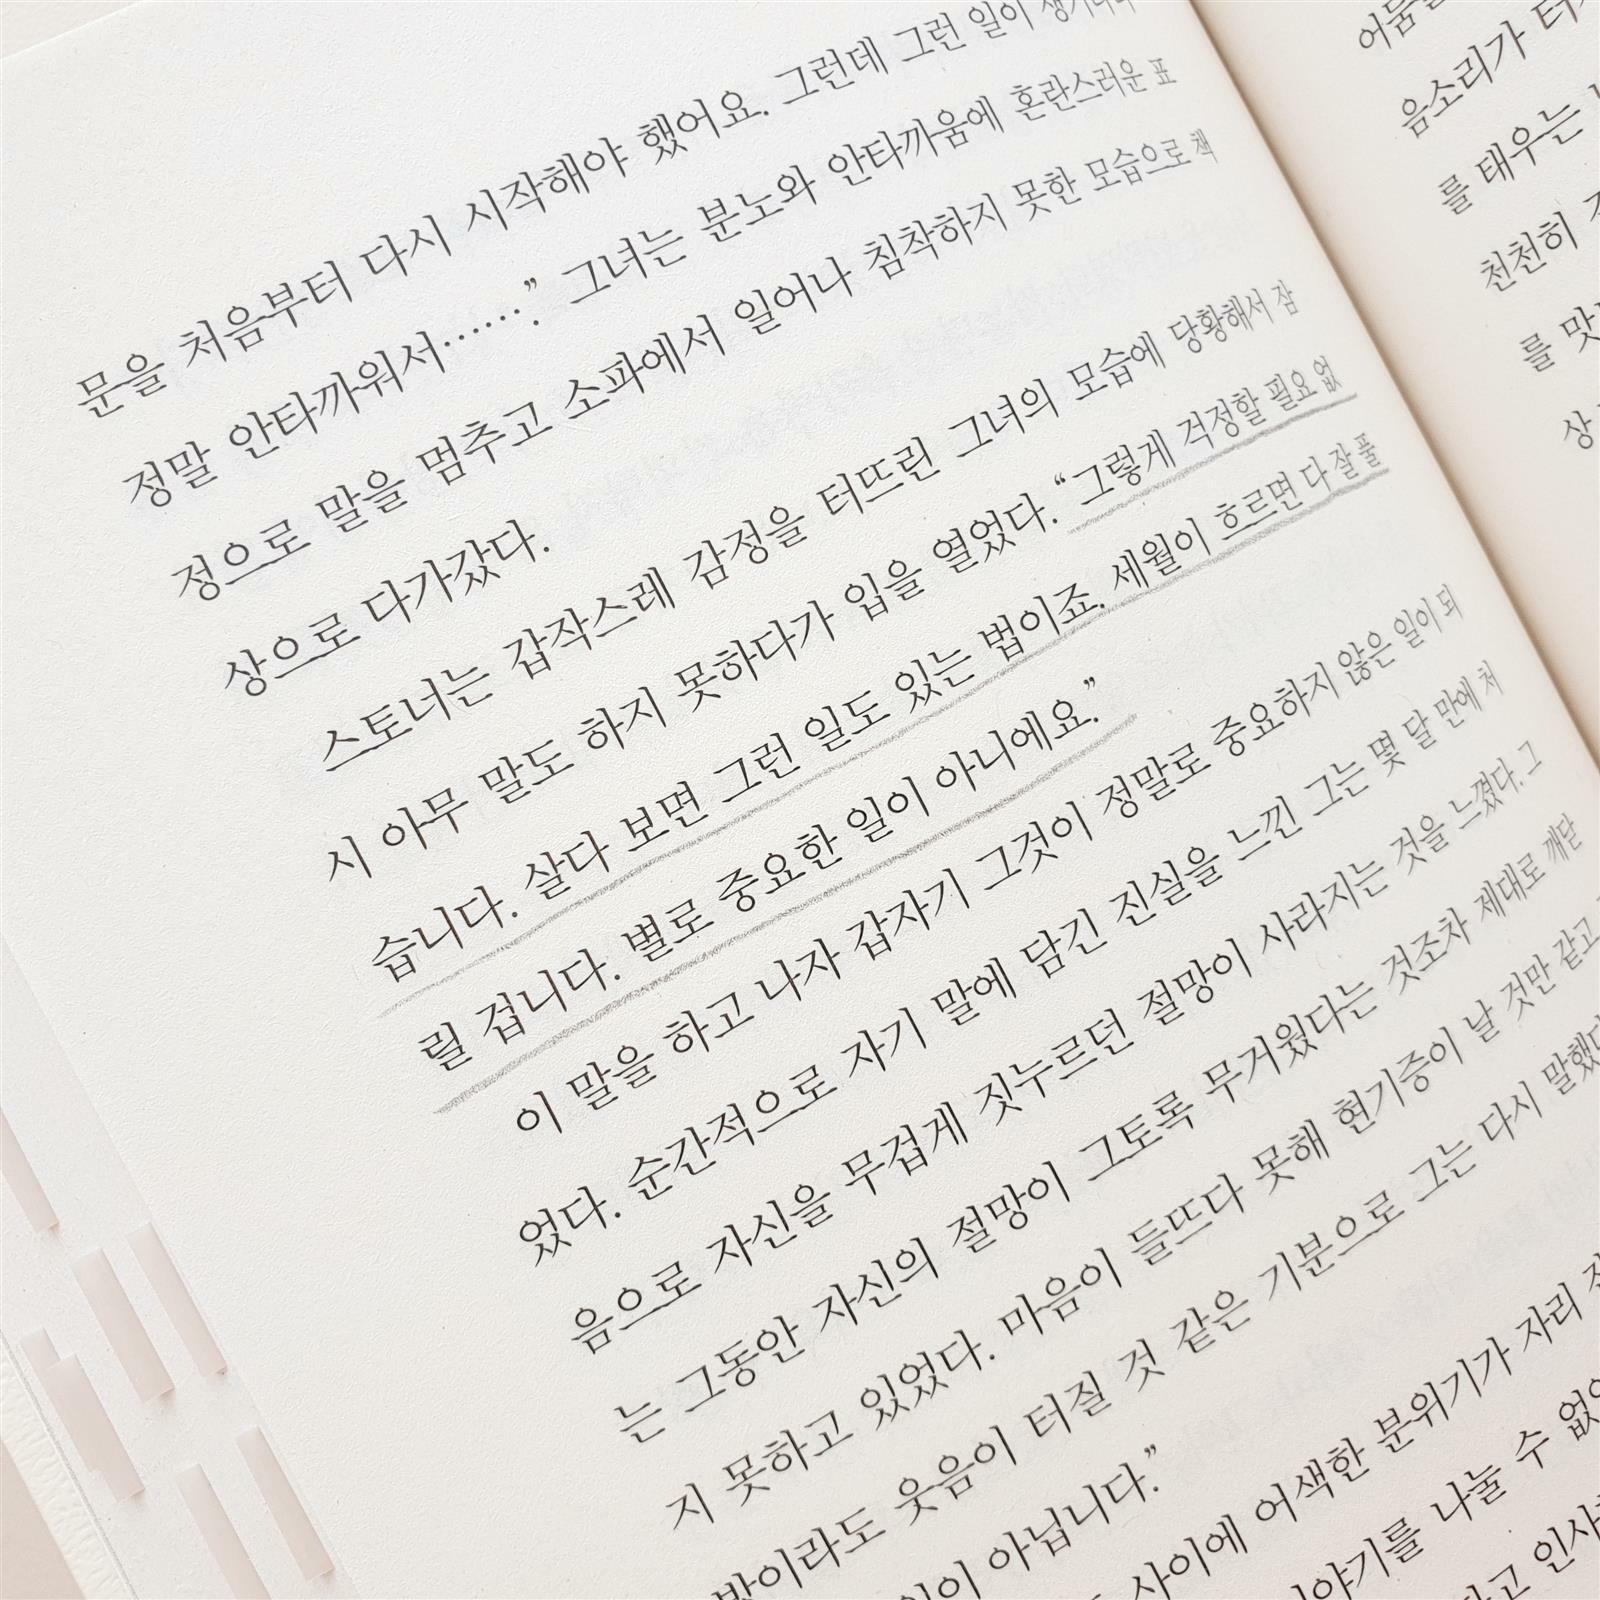 문을 처음부터 다시 시작해야 했어요. 그런데 그런 일이
정말 안타까워서……”. 그녀는 분노와 안타까움에 혼란스러운 표
정으로 말을 멈추고 소파에서 일어나 침착하지 못한 모습으로 책
상으로 다가갔다.
스토너는 갑작스레 감정을 터뜨린 그녀의 모습에 당황해서 잠
시 아무 말도 하지 못하다가 입을 열었다. “그렇게 걱정할 필요 없
습니다. 살다 보면 그런 일도 있는 법이죠. 세월이 흐르면 다 잘 풀
릴 겁니다. 별로 중요한 일이 아니에요.”
이 말을 하고 나자 갑자기 그것이 정말로 중요하지 않은 일이 되
었다. 순간적으로 자기 말에 담긴 진실을 느낀 그는 몇 달 만에 처
음으로 자신을 무겁게 짓누르던 절망이 사라지는 것을 느꼈다. 그
는 그동안 자신의 절망이 그토록 무거웠다는 것조차 제대로 깨닫
지 못하고 있었다. 마음이 들뜨다 못해 현기증이 날 것만 같고,
방이라도 웃음이 터질 것 같은 기분으로 그는 다시 말했다
일이 아닙니다.”
사이에 어색한 분위기가 자리
이야기를 나눌 수
하고
어둠
음소리가
를 태우는
천천히
를
상